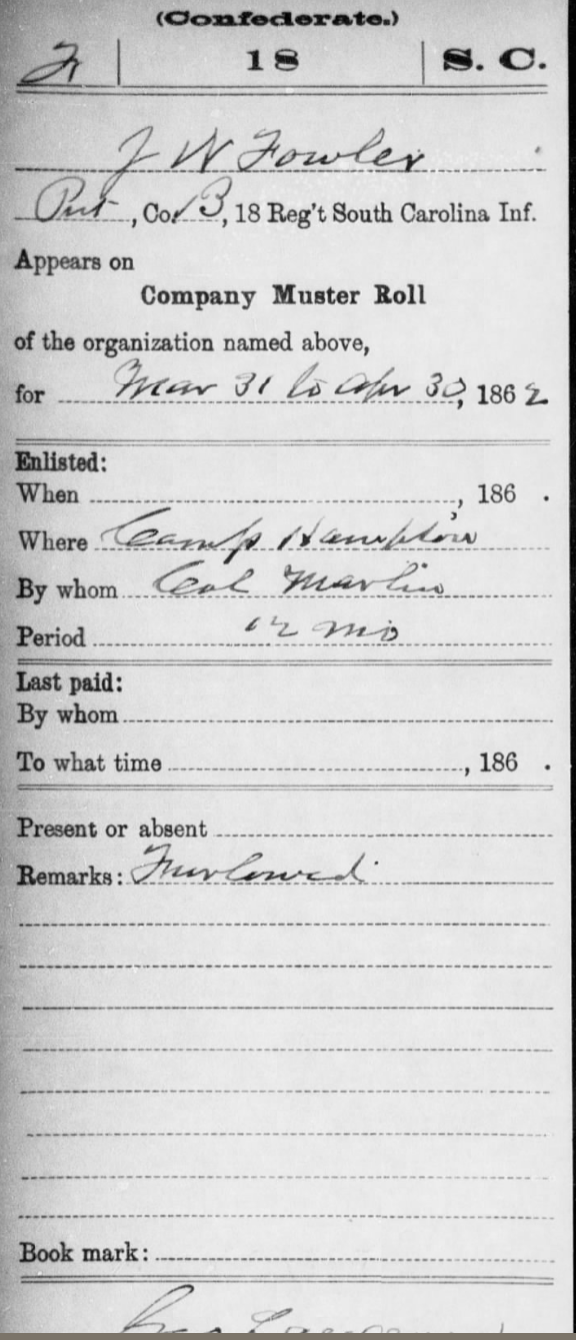 (Confederate.)
F | 18 | S. C.
J W Fowler
Pvt, Co. B, 18 Reg't South Carolina Inf.
Appears on
Company Muster Roll
of the organization named above,
for Mar 31 to Apr 30, 1862
Enlisted:
When , 186 .
Where Camp Hampton
By whom Col Marlin
Period 12 mo
Last paid:
By whom
To what time , 186 .
Present or absent
Remarks: Furlowed
Book mark: